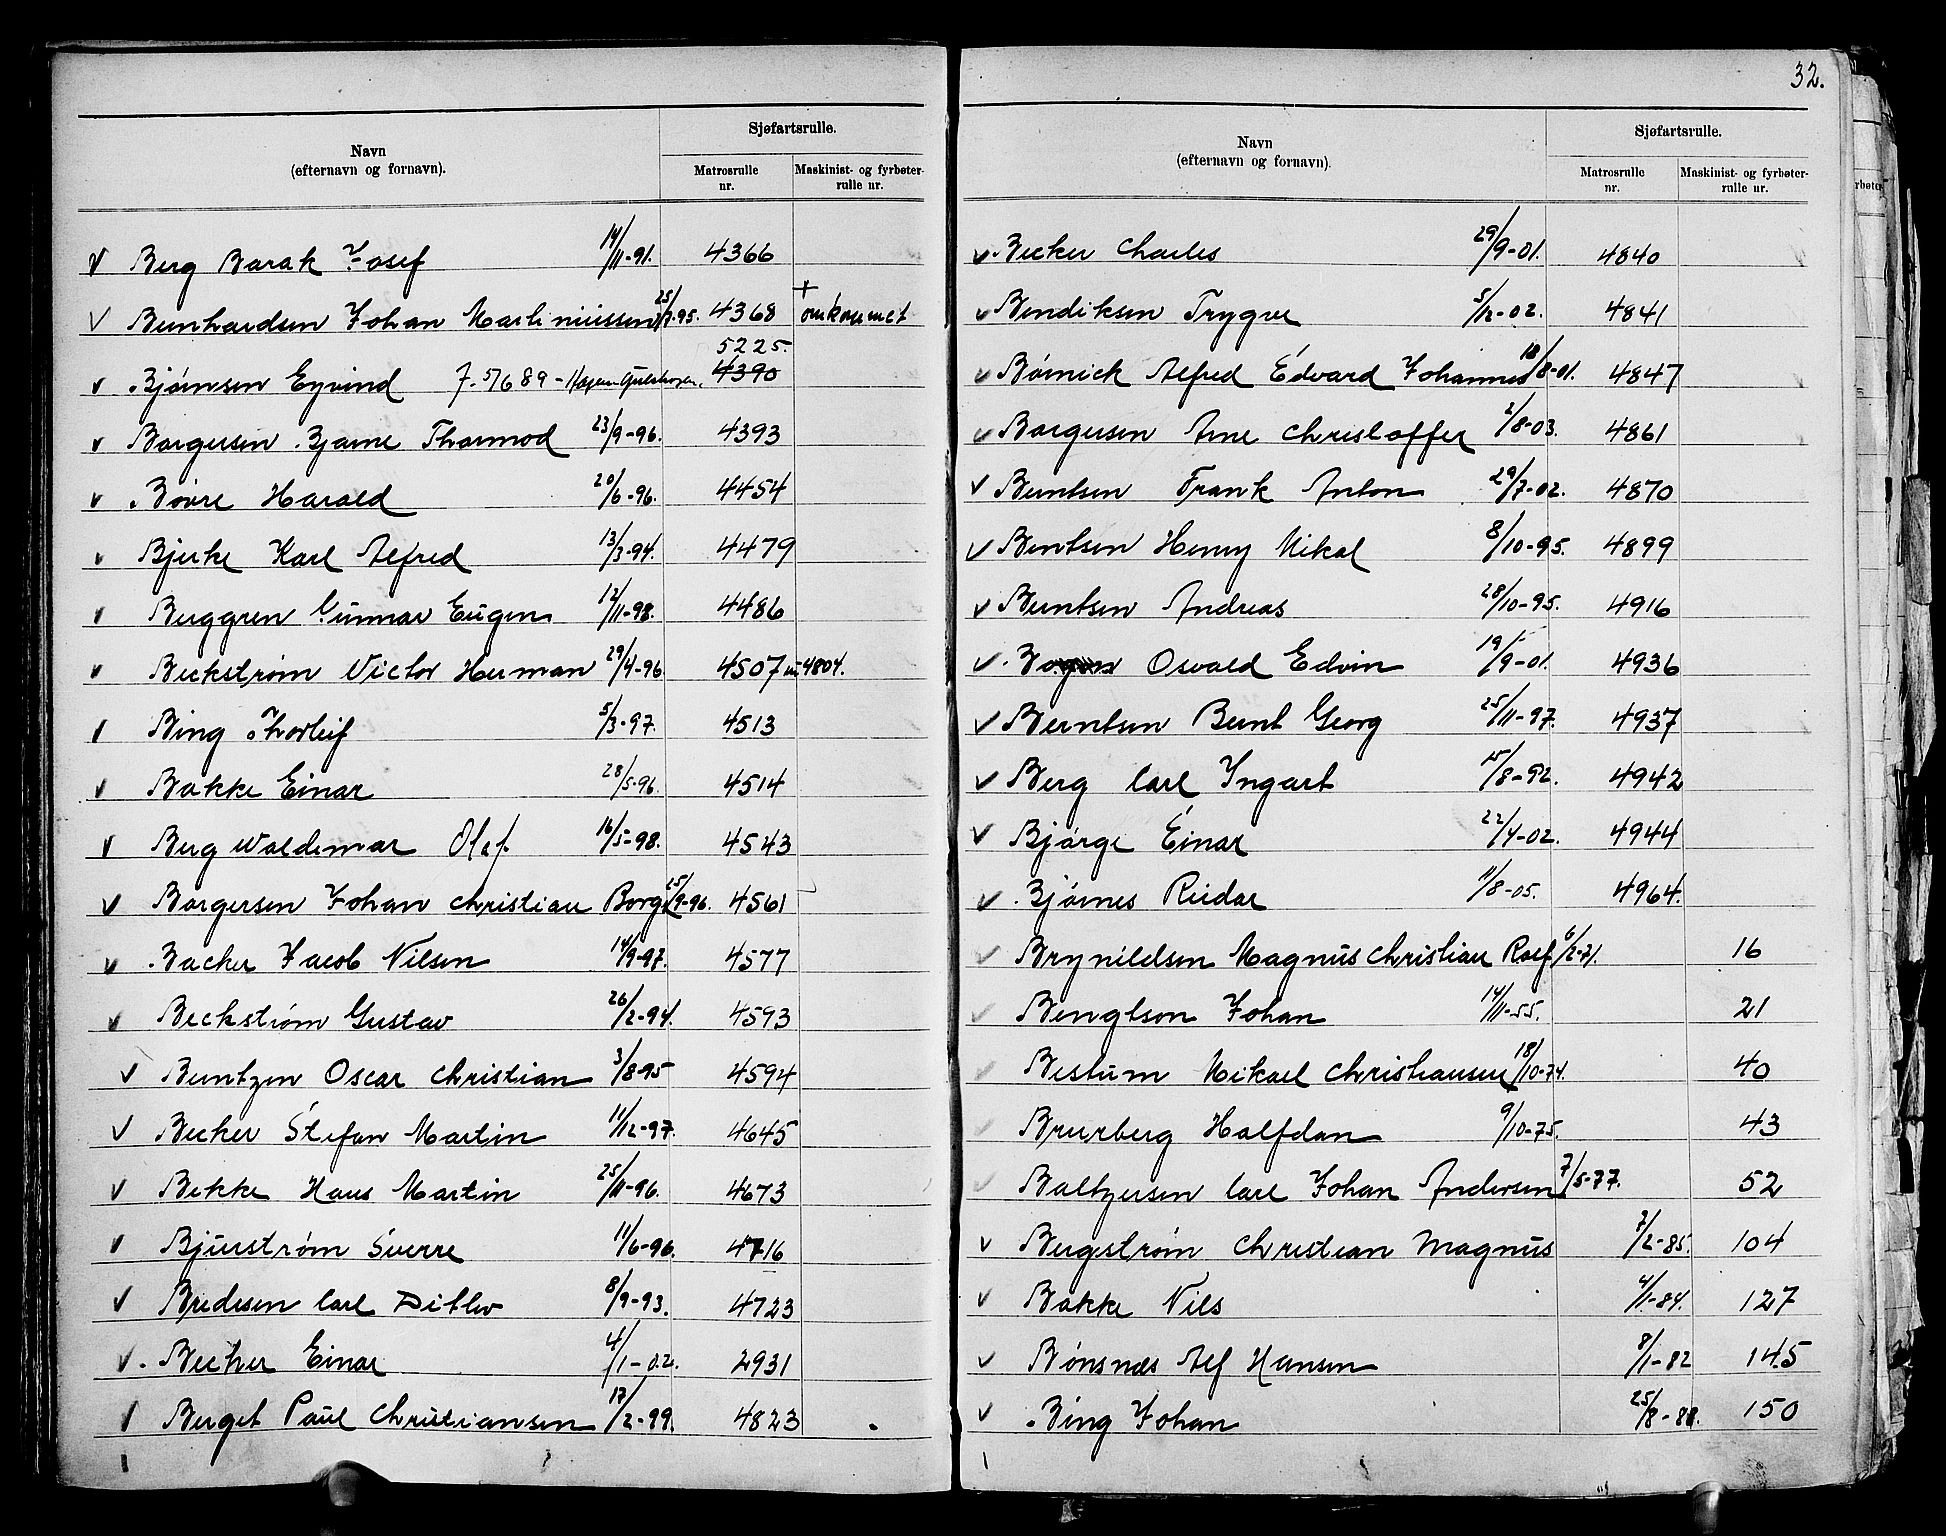 Navn
(efternavn og fornavn).
Sjøfartsrulle.
Matrosrulle nr.
Maskinist- og fyrbøter-rulle nr.
Berg Barak Josef 14/11-91. 4366
Bernhardsen Johan Martiniussen 25/7-95. 4368 + omkommet
5225.
Bjørnsen Eyvind 4390
Borgersen Bjarne Thormod 23/9-96. 4393
Bovre Harald 20/6-96. 4454
Bjerke Karl Alfred 13/3-94. 4479
Berggren Gunnar Eugen 12/11-98. 4486
Beckstrøm Victor Herman 29/4-96 4507 4804.
Bing Thorleif 5/3-97. 4513
Bakke Einar 28/5-96. 4514
Berg Waldemar Olaf 16/5-98. 4543
Borgersen Johan Christian Borg 25/9-96. 4561
Backer Jacob Nilsen 14/9-97. 4577
Beckstrøm Gustav 26/2-94. 4593
Berntzen Oscar Christian 3/8-95 4594
Becker Stefan Martin 11/12-97. 4645
Bekke Hans Martin 25/11-96. 4673
Bjurstrøm Sverre 11/6-96. 4716
Bredesen Carl Ditlev 8/9-93. 4723
Becker Einar 4/1-02. 2931
Berget Paul Christiansen 17/2-99. 4823
32.
Navn
(efternavn og fornavn).
Sjøfartsrulle.
Matrosrulle nr.
Maskinist- og fyrbøter-rulle nr.
rbøter
Becker Charles 29/9-01. 4840
Bendiksen Trygve 5/12-02. 4841
Børnick Alfred Edvard Johannes 18/8-01. 4847
Borgersen Arne Christoffer 2/8-03. 4861
Berntsen Frank Anton 29/7-02. 4870
Berntsen Henry Mikal 8/10-95. 4899
Berntsen Andreas 28/10-95. 4916
Osvald Edvin 19/9-01. 4936
Berntsen Bernt Georg 25/11-97. 4937
Berg Carl Ingart 15/8-92. 4942
Bjørge Einar 22/4-02. 4944
Bjørnes Reidar 11/8-05. 4964.
Brynildsen Magnus Christian Rolf 6/2-71. 16
Bengtson Johan 14/11-55. 21
Bestum Mikael Christiansen 18/10-74. 40
Brurberg Halfdan 9/10-75. 43
Baltzersen Carl Johan Andersen 7/5-77. 52
Bergstrøm Christian Magnus 7/2-85. 104
Bakke Nils 4/11-84. 127
Bønsnæs Alf Hansen 8/1-82 145
Bing Johan 25/8-88. 150